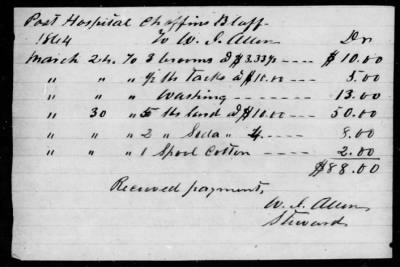 Post Hospital Chaffins Bluff
1864 To W. J. Allen Dr
March 24. To 3 brooms @ $3.33⅓ ---- $10.00
" " " ½ lbs tacks @ $10.00 ---- 5.00
" " " Washing ---- 13.00
" 30 " 5 lbs lard @ $10.00 ---- 50.00
" " " 2 " Soda " 4. ---- 8.00
" " " 1 Spool Cotton ---- 2.00
$88.00
Received payment,
W. J. Allen
Steward